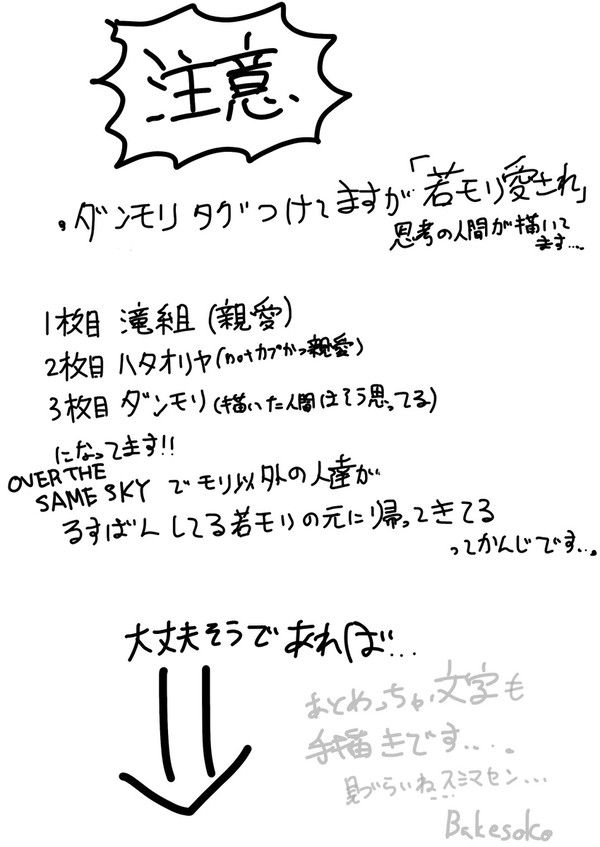 注意
・ダンモリタグつけてますが「若モリ愛され」
思考の人間が描いて
ます….
1枚目 滝組 (親愛)
2枚目 ハタオリヤ (notカプかつ親愛)
3枚目 ダンモリ (描いた人間はそう思ってる)
になってます!!
OVER THE
SAME SKY でモリ以外の人達が
るすばんしてる若モリの元に帰ってきてる
ってかんじです…。
大丈夫そうであれば…
あとめっちゃ文字も
手描きです….。
見づらいねスミマセン…
Bakesoko